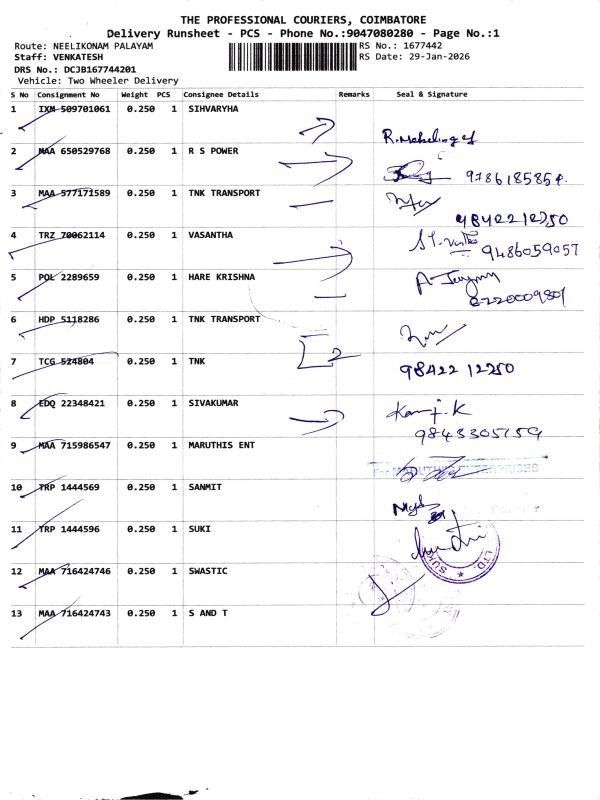 THE PROFESSIONAL COURIERS, COIMBATORE
Delivery Runsheet - PCS - Phone No.:9047080280 - Page No.:1
Route: NEELIKONAM PALAYAM
RS No.: 1677442
Staff: VENKATESH
RS Date: 29-Jan-2026
DRS No.: DCJB167744201
Vehicle: Two Wheeler Delivery
S No Consignment No Weight PCS Consignee Details Remarks Seal & Signature
1 IXM 509701061 0.250 1 SIHVARYHA
2 MAA 650529768 0.250 1 R S POWER
3 MAA 577171589 0.250 1 TNK TRANSPORT
9842212250
4 TRZ 70062114 0.250 1 VASANTHA 9486059057
5 POL 2289659 0.250 1 HARE KRISHNA
6 HDP 5118286 0.250 1 TNK TRANSPORT
7 TCG 524804 0.250 1 TNK 2 98422 12250
8 EDQ 22348421 0.250 1 SIVAKUMAR
9843305759
9 MAA 715986547 0.250 1 MARUTHIS ENT
For MARUTHIS ENTERPRISES
10 TRP 1444569 0.250 1 SANMIT
11 TRP 1444596 0.250 1 SUKI
12 MAA 716424746 0.250 1 SWASTIC
13 MAA 716424743 0.250 1 S AND T